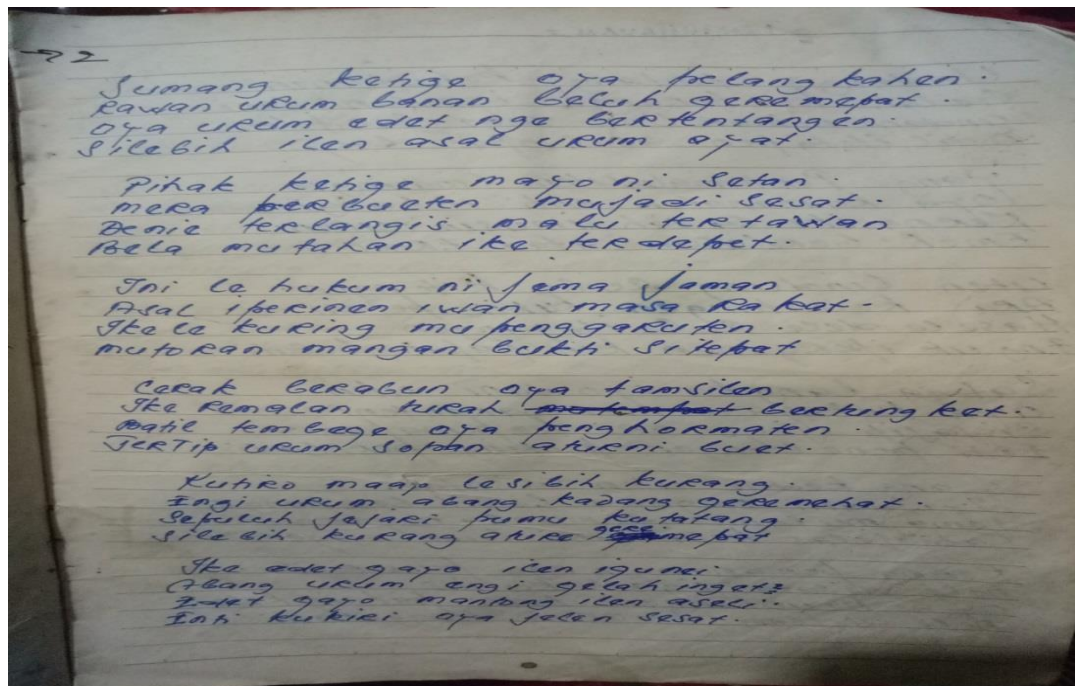 → 2
Sumang ketige oya pelang kahen.
Rawan urum banan beluh gere mepat.
Oya urum edet nge bertentangen.
Silebih ilen asal urum ayat.
Pihak ketige mayo ni setan.
mera perbueten mujadi sesat.
Denie terlangis malu tertawan
Bela mutahan ike terdepet.
Ini le hukum ni jema jaman
Asal iperinen iwan masa rakat.
Ike le kuring mu penggaruten.
mutoran mangan bukti sitepat
Cerak berabun oya tamsilen
Ike remalan turah bertungket.
Batil tembege oya penghormaten.
Tertip urum sopan aturni buet.
Kutiro maap lesibih kurang.
Ingi urum abang kadang gere mehat.
Sepuluh jejari pumu kutatang.
Silebih kurang ature gere mepat
Ike edet gayo ilen igunei.
Abang urum engi gelah inget2
Edet gayo mantong ilen aseli.
Inti kukiri oya jelen sesat.